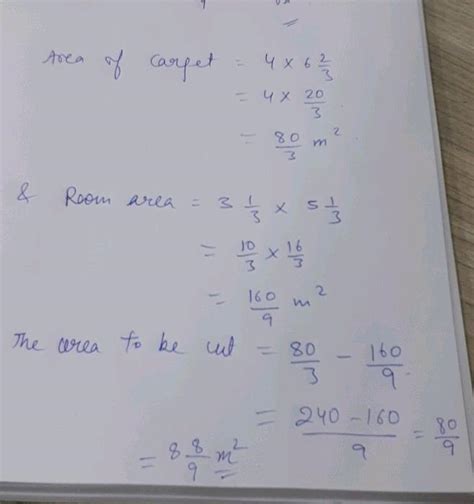 Area of carpet = 4 × 6 2/3
= 4 × 20/3
= 80/3 m²
& Room area = 3 1/3 × 5 1/3
= 10/3 × 16/3
= 160/9 m²
The area to be cut = 80/3 - 160/9.
= 240 - 160/9 = 80/9
= 8 8/9 m²